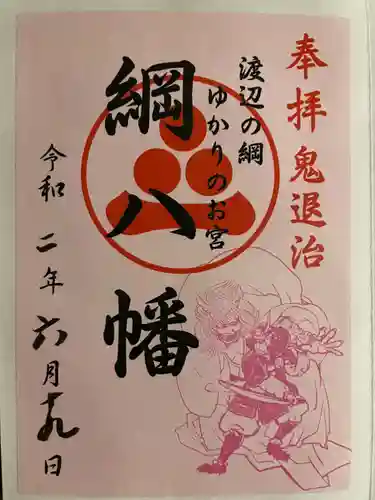 奉拝 鬼退治
渡辺の綱
ゆかりのお宮
綱八幡
令和二年六月十九日